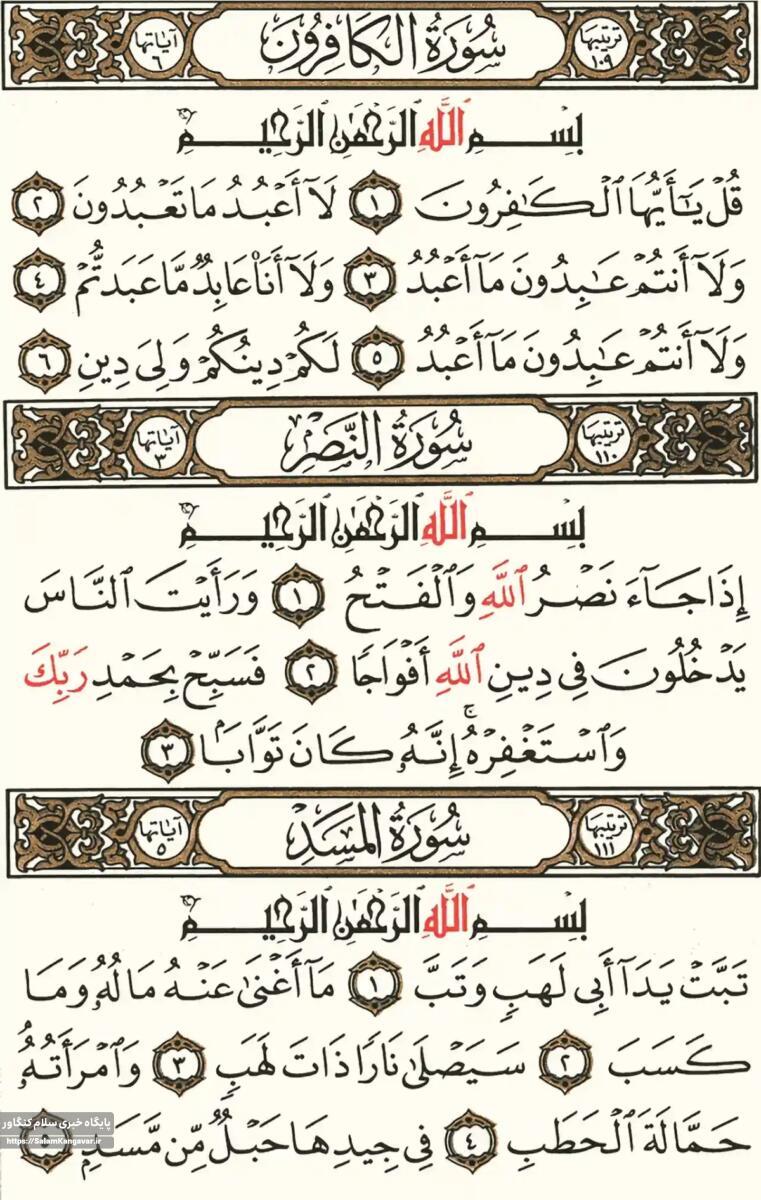 ترتيبها ١٠٩ سُورَةُ الكَافِرُون آياتها ٦
بِسْمِ ٱللَّهِ ٱلرَّحْمَٰنِ ٱلرَّحِيمِ
قُلْ يَٰٓأَيُّهَا ٱلْكَٰفِرُونَ ١ لَآ أَعْبُدُ مَا تَعْبُدُونَ ٢
وَلَآ أَنتُمْ عَٰبِدُونَ مَآ أَعْبُدُ ٣ وَلَآ أَنَا۠ عَابِدٌ مَّا عَبَدتُّمْ ٤
وَلَآ أَنتُمْ عَٰبِدُونَ مَآ أَعْبُدُ ٥ لَكُمْ دِينُكُمْ وَلِىَ دِينِ ٦
ترتيبها ١١٠ سُورَةُ النَّصْرِ آياتها ٣
بِسْمِ ٱللَّهِ ٱلرَّحْمَٰنِ ٱلرَّحِيمِ
إِذَا جَآءَ نَصْرُ ٱللَّهِ وَٱلْفَتْحُ ١ وَرَأَيْتَ ٱلنَّاسَ
يَدْخُلُونَ فِى دِينِ ٱللَّهِ أَفْوَاجًا ٢ فَسَبِّحْ بِحَمْدِ رَبِّكَ
وَٱسْتَغْفِرْهُ ۚ إِنَّهُۥ كَانَ تَوَّابًۢا ٣
ترتيبها ١١١ سُورَةُ المَسَدِ آياتها ٥
بِسْمِ ٱللَّهِ ٱلرَّحْمَٰنِ ٱلرَّحِيمِ
تَبَّتْ يَدَآ أَبِى لَهَبٍ وَتَبَّ ١ مَآ أَغْنَىٰ عَنْهُ مَالُهُۥ وَمَا
كَسَبَ ٢ سَيَصْلَىٰ نَارًا ذَاتَ لَهَبٍ ٣ وَٱمْرَأَتُهُۥ
حَمَّالَةَ ٱلْحَطَبِ ٤ فِى جِيدِهَا حَبْلٌ مِّن مَّسَدٍۭ ٥
پایگاه خبری سلام کنگاور
https://SalamKangavar.ir